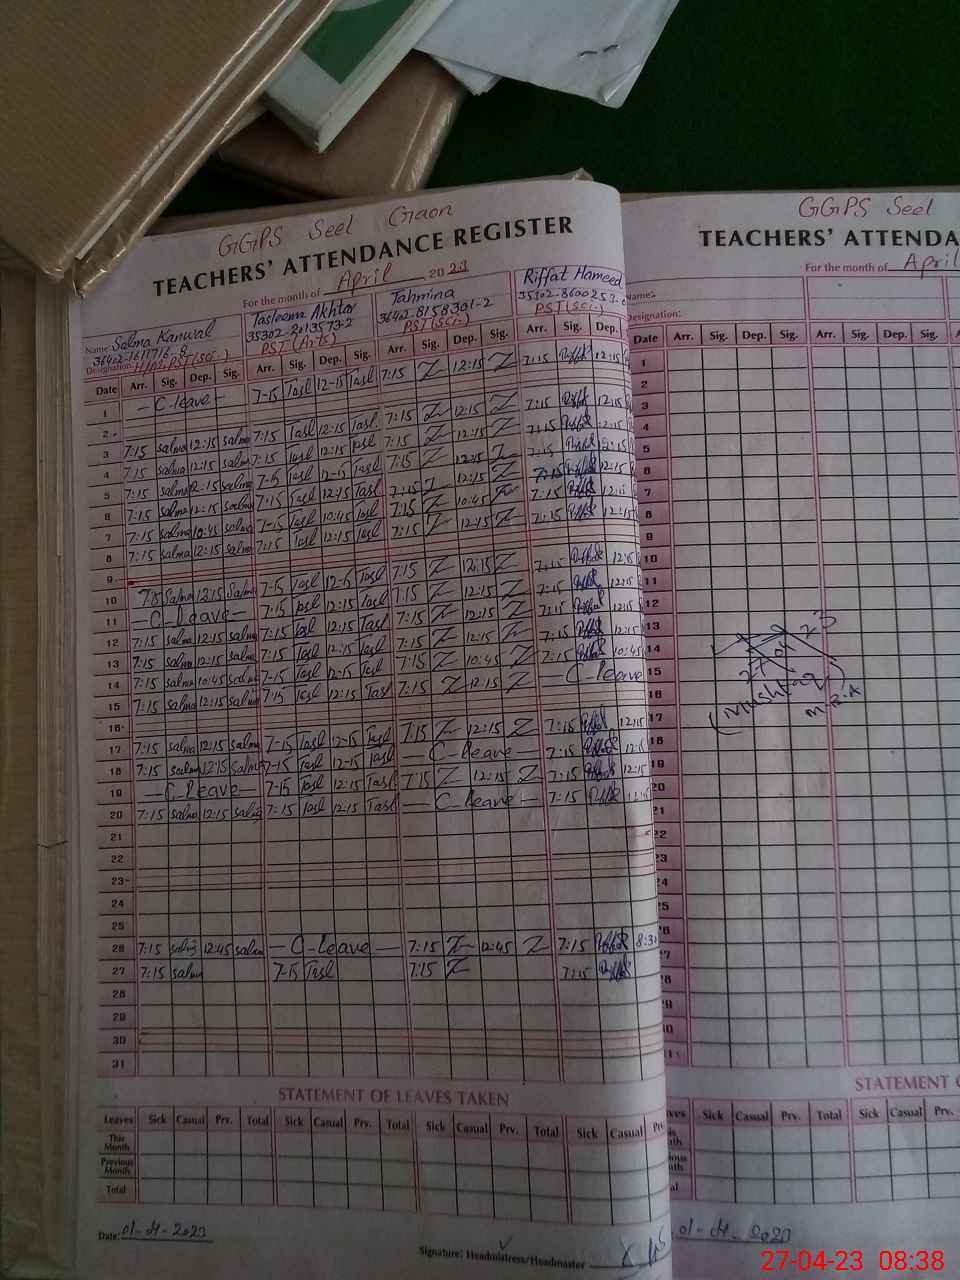 GGPS Seel Gaon
TEACHERS' ATTENDANCE REGISTER
For the month of April 2023
Name: Salma Kanwal Tasleem Akhtar Tahmina Riffat Hameed
35302-2013573-2 36402-8158301-2
Designation: PST (Arts) PST (Sci.) PST (Sci.)
Date Arr. Sig. Dep. Sig. Arr. Sig. Dep. Sig. Arr. Sig. Dep. Sig. Arr. Sig. Dep.
1 - C-leave - 7-15 Tasl 12-15 Tasl 7:15 Z 12:15 Z 7:15 12:15
2
3 7:15 salma 12:15 salma 7:15 Tasl 12:15 Tasl 7:15 Z 12:15 Z 7:15 12:15
4 7:15 salma 12:15 salma 7:15 Tasl 12:15 Tasl 7:15 Z 12:15 Z 7:15 12:15
5 7:15 salma 12:15 salma 7-15 Tasl 12-15 Tasl 7:15 Z 12:15 Z 7:15 12:15
6 7:15 salma 12:15 salma 7-15 Tasl 12:15 Tasl 7:15 Z 12:15 Z 7:15 12:15
7 7:15 salma 10:45 salma 7-15 Tasl 10:45 Tasl 7:15 Z 10:45 Z 7:15
8 7:15 salma 12:15 salma 7:15 Tasl 12:15 Tasl 7:15 Z 12:15 Z 7:15 12:15
9
10 Salma 12:15 Salma 7-15 Tasl 12-15 Tasl 7:15 Z 12:15 Z 7:15
11 - C-leave - 7:15 Tasl 12:15 Tasl 7:15 Z 12:15 Z 7:15 12:15
12 7:15 salma 12:15 salma 7:15 Tasl 12:15 Tasl 7:15 Z 12:15 Z 7:15 12:15
13 7:15 salma 12:15 salma 7:15 Tasl 12:15 Tasl 7:15 Z 12:15 Z 7:15 12:15
14 7:15 salma 10:45 salma 7-15 Tasl Tasl 7:15 Z 10:45 Z 7:15 10:45
15 7:15 salma 12:15 salma 7:15 Tasl 12:15 Tasl 7:15 Z 12:15 Z - C-leave
16
17 7:15 salma 12:15 salma 7-15 Tasl 12-15 Tasl 7:15 Z 12:15 Z 7:15 12:15
18 7:15 salma 12:15 salma 7-15 Tasl 12-15 Tasl - C-leave - 7:15
19 - C-leave - 7-15 Tasl 12:15 Tasl 7:15 Z 12:15 Z 7:15 12:15
20 7:15 salma 12:15 salma 7:15 Tasl 12:15 Tasl - C-leave - 7:15
21
22
23
24
25
26 7:15 salma 12:45 salma - C-leave - 7:15 Z 12:45 Z 7:15
27 7:15 salma 7-15 Tasl 7:15 Z 7:15
28
29
30
31
STATEMENT OF LEAVES TAKEN
Leaves Sick Casual Prv. Total Sick Casual Prv. Total Sick Casual Prv. Total Sick Casual
This Month
Previous Month
Total
Date: 01-04-2023
Signature: Headmistress/Headmaster
GGPS Seel
TEACHERS' ATTENDA
For the month of April
Name:
Designation:
Date Arr. Sig. Dep. Sig. Arr. Sig. Dep. Sig.
1
2
3
4
5
6
7
8
9
10
11
12
13
14
15
16
17
18
19
20
21
22
23
24
25
26
27
28
29
Mushtaq
STATEMENT
Sick Casual Prv. Total Sick Casual Prv.
01-04-2023
27-04-23 08:38